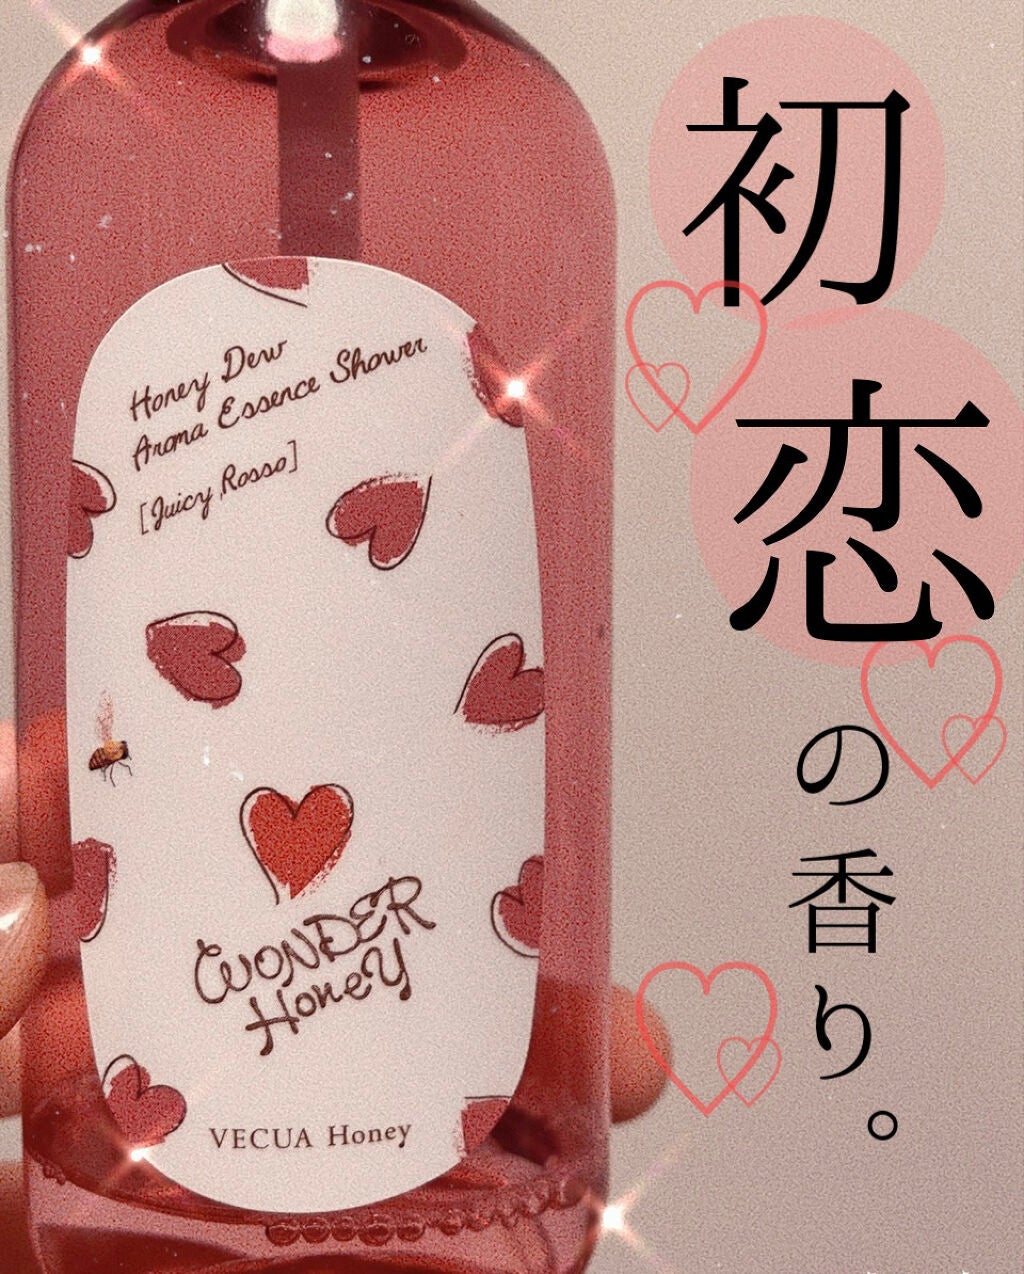 初恋の香り。
Honey Dew
Aroma Essence Shower
[Juicy Rosso]
WONDER
Honey
VECUA Honey